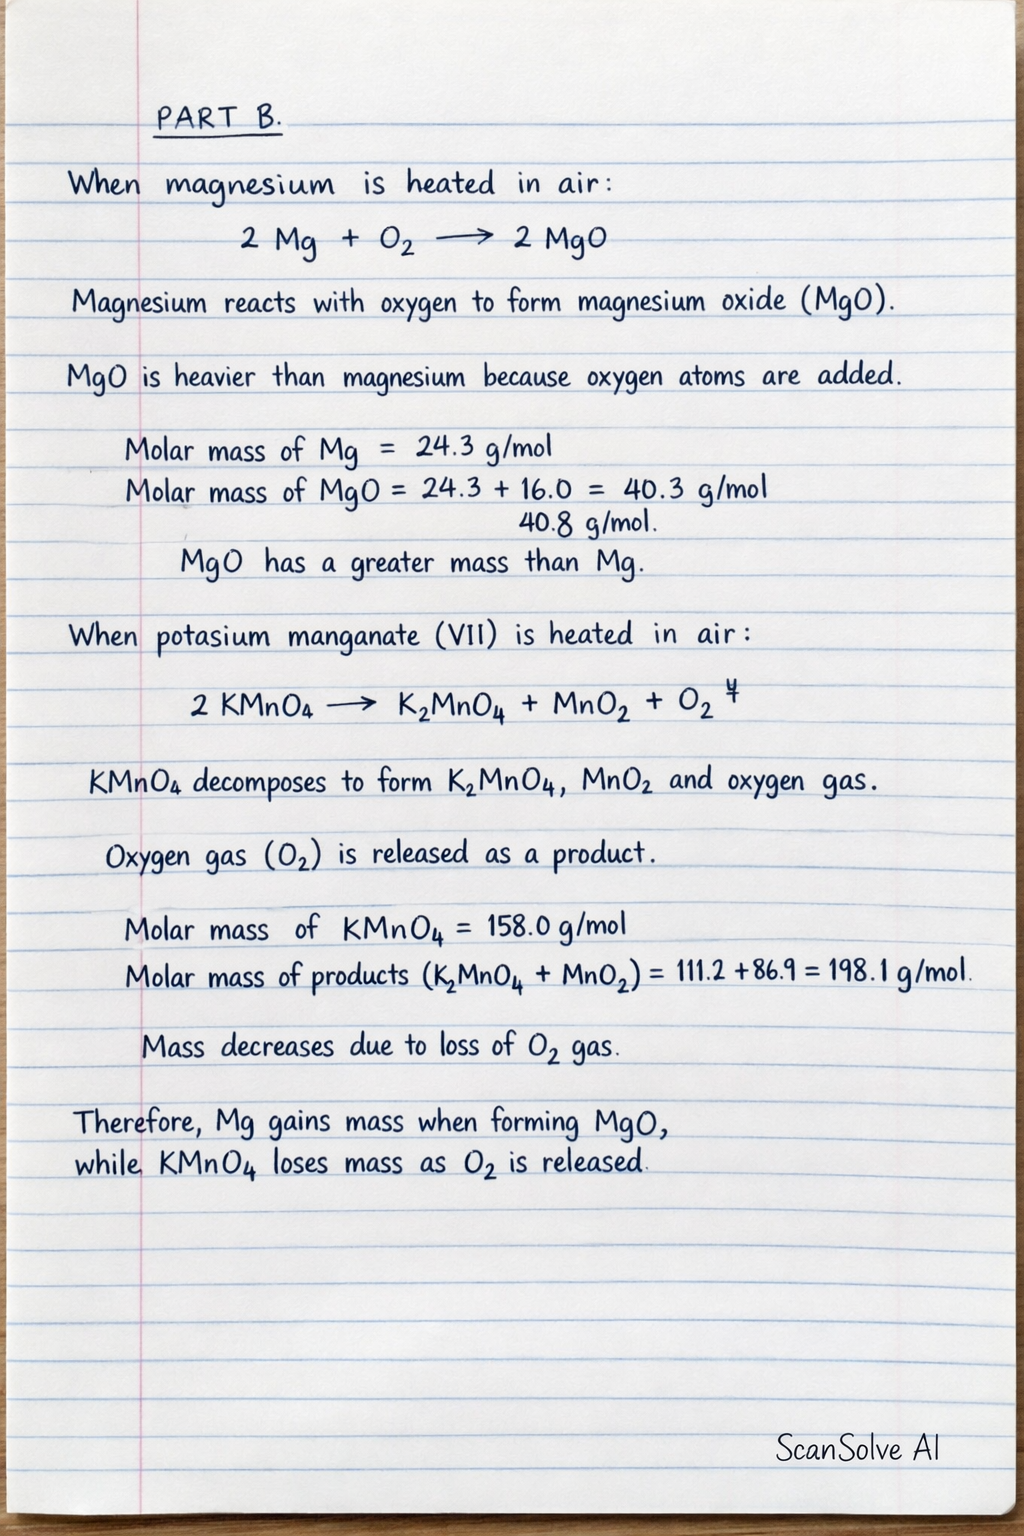 PART B.
When magnesium is heated in air:
2 Mg + O₂ ⟶ 2 MgO
Magnesium reacts with oxygen to form magnesium oxide (MgO).
MgO is heavier than magnesium because oxygen atoms are added.
Molar mass of Mg = 24.3 g/mol
Molar mass of MgO = 24.3 + 16.0 = 40.3 g/mol
40.8 g/mol.
MgO has a greater mass than Mg.
When potasium manganate (VII) is heated in air:
2 KMnO₄ ⟶ K₂MnO₄ + MnO₂ + O₂
KMnO₄ decomposes to form K₂MnO₄, MnO₂ and oxygen gas.
Oxygen gas (O₂) is released as a product.
Molar mass of KMnO₄ = 158.0 g/mol
Molar mass of products (K₂MnO₄ + MnO₂) = 111.2 + 86.9 = 198.1 g/mol.
Mass decreases due to loss of O₂ gas.
Therefore, Mg gains mass when forming MgO,
while KMnO₄ loses mass as O₂ is released.
ScanSolve AI